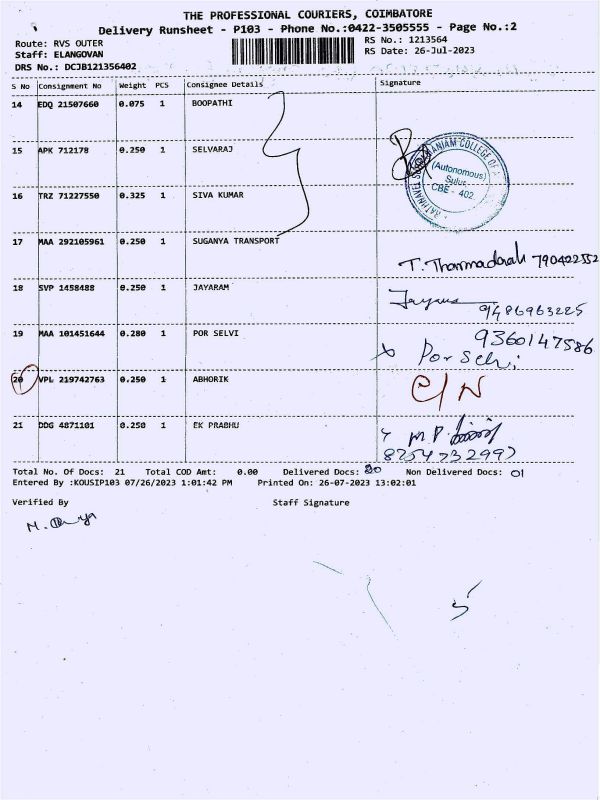 THE PROFESSIONAL COURIERS, COIMBATORE
Delivery Runsheet - P103 - Phone No.:0422-3505555 - Page No.:2
Route: RVS OUTER RS No.: 1213564
Staff: ELANGOVAN RS Date: 26-Jul-2023
DRS No.: DCJB121356402
S No Consignment No Weight PCS Consignee Details Signature
14 EDQ 21507660 0.075 1 BOOPATHI
15 APK 712178 0.250 1 SELVARAJ
16 TRZ 71227550 0.325 1 SIVA KUMAR
(Autonomous)
Sulur
CBE - 402.
17 MAA 292105961 0.250 1 SUGANYA TRANSPORT
790422552
18 SVP 1458488 0.250 1 JAYARAM
9486963225
19 MAA 101451644 0.280 1 POR SELVI 9360147586
Por Selvi
20 VPL 219742763 0.250 1 ABHORIK C/N
21 DDG 4871101 0.250 1 EK PRABHU
Total No. Of Docs: 21 Total COD Amt: 0.00 Delivered Docs: 20 Non Delivered Docs: 01
Entered By :KOUSIP103 07/26/2023 1:01:42 PM Printed On: 26-07-2023 13:02:01
Verified By Staff Signature
5